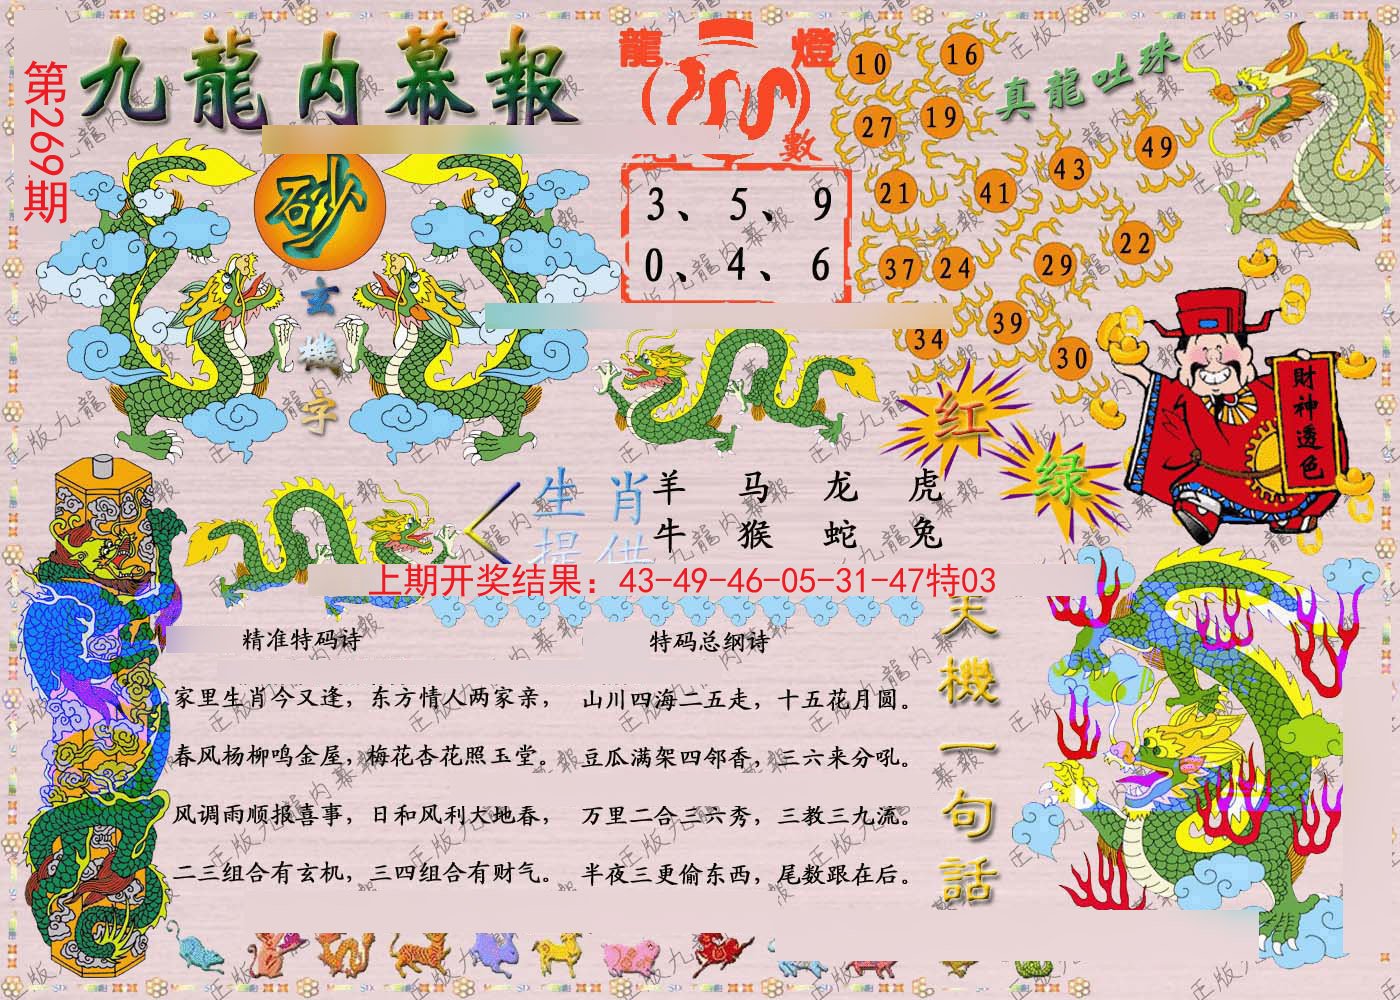 第269期
九龍内幕報
龍燈
數
3、5、9
0、4、6
砂
玄機字
真龍吐珠
10 16
27 19
21 41 43 49
37 24 29 22
34 39 30
財神透色
红
绿
生肖
提供
羊 马 龙 虎
牛 猴 蛇 兔
上期开奖结果：43-49-46-05-31-47特03
精准特码诗
家里生肖今又逢，东方情人两家亲，
春风杨柳鸣金屋，梅花杏花照玉堂。
风调雨顺报喜事，日和风利大地春，
二三组合有玄机，三四组合有财气。
特码总纲诗
山川四海二五走，十五花月圆。
豆瓜满架四邻香，三六来分吼。
万里二合三六秀，三教三九流。
半夜三更偷东西，尾数跟在后。
天機一句話
正版九龍内幕報